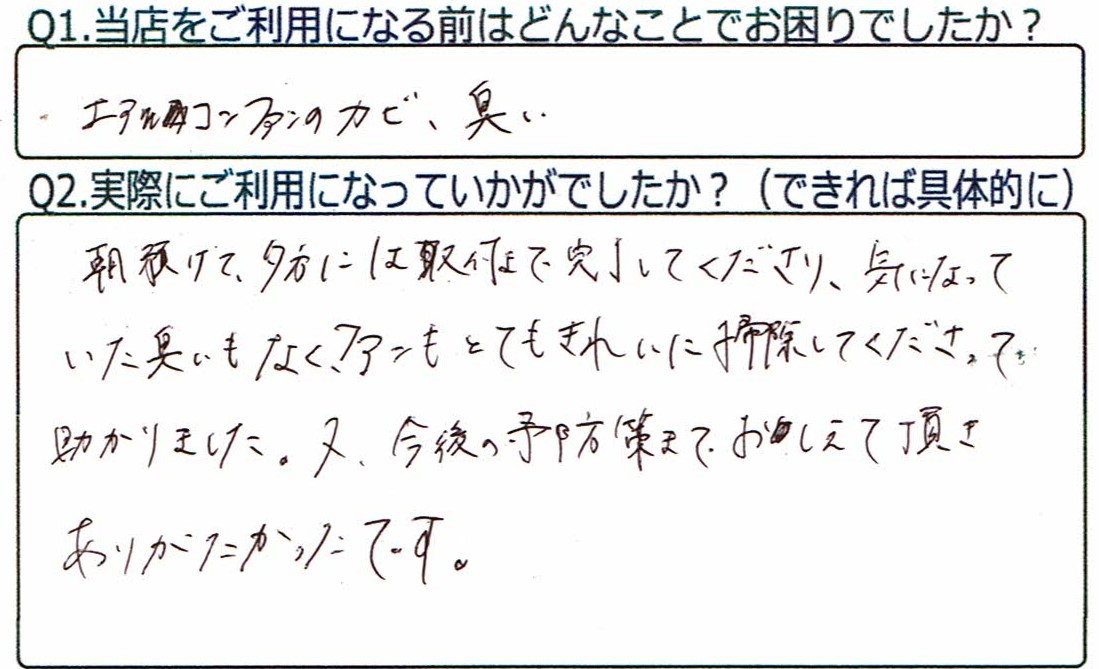 Q1.当店をご利用になる前はどんなことでお困りでしたか？
エアコンファンのカビ、臭い
Q2.実際にご利用になっていかがでしたか？（できれば具体的に）
朝預けて、夕方には取付まで完了してくださり、気になって
いた臭いもなく、ファンもとてもきれいに掃除してくださって
助かりました。又、今後の予防策までおしえて頂き
ありがたかったです。